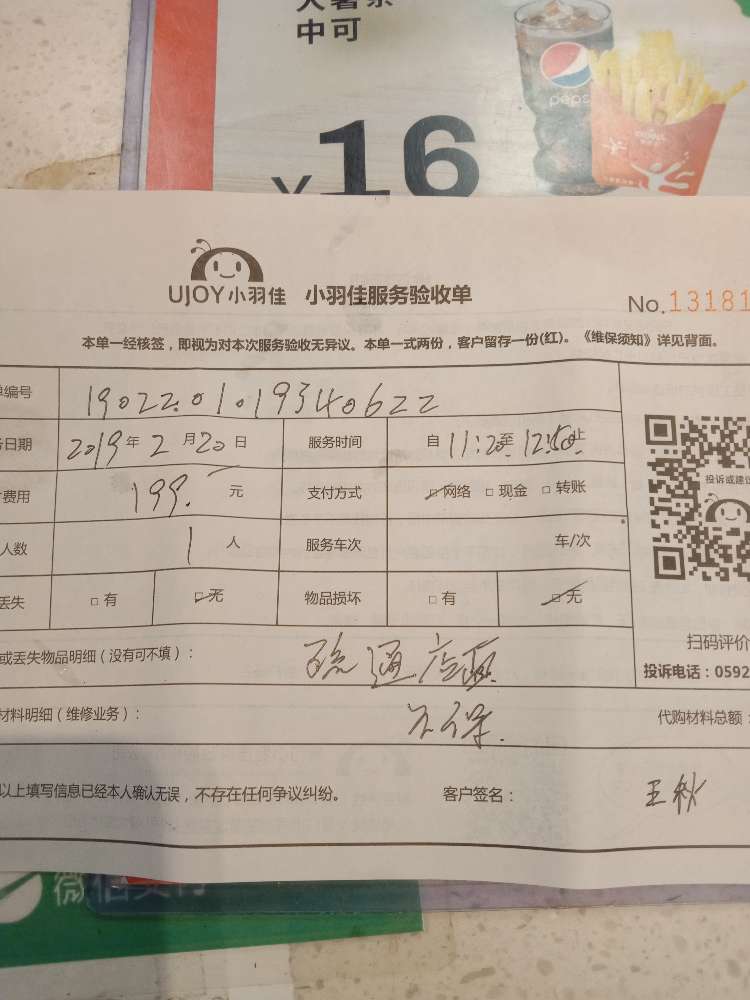 中可
pepsi
¥16
UJOY小羽佳 小羽佳服务验收单
No.13181
本单一经核签，即视为对本次服务验收无异议。本单一式两份，客户留存一份(红)。《维保须知》详见背面。
单编号 1902201019340622
日期 2019年2月20日 服务时间 自11:20至12:50止
费用 199.元 支付方式 网络 现金 转账
投诉或建议
人数 1人 服务车次 车/次
丢失 有 无 物品损坏 有 无
扫码评价
或丢失物品明细（没有可不填）： 疏通店面
投诉电话：0592
材料明细（维修业务）： 不保 代购材料总额：
以上填写信息已经本人确认无误，不存在任何争议纠纷。 客户签名： 王秋
微信支付